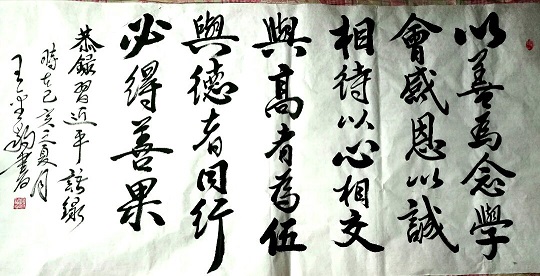 以善為念學
會感恩以誠
相待以心相交
與高者為伍
與德者同行
必得善果
恭錄習近平語錄
時在己亥之夏月